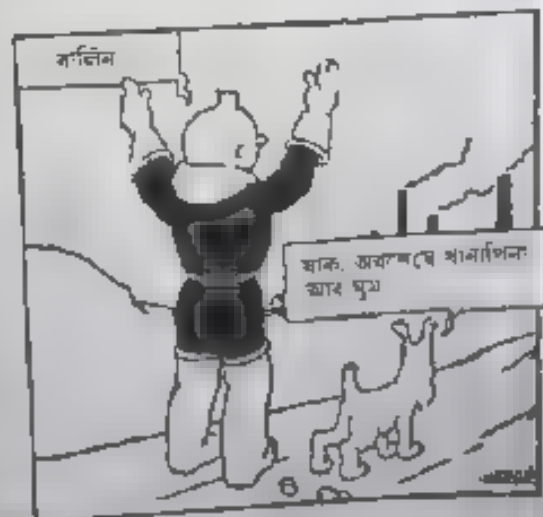 বার্লিন
যাক, অবশেষে খানাপিনা
আর ঘুম